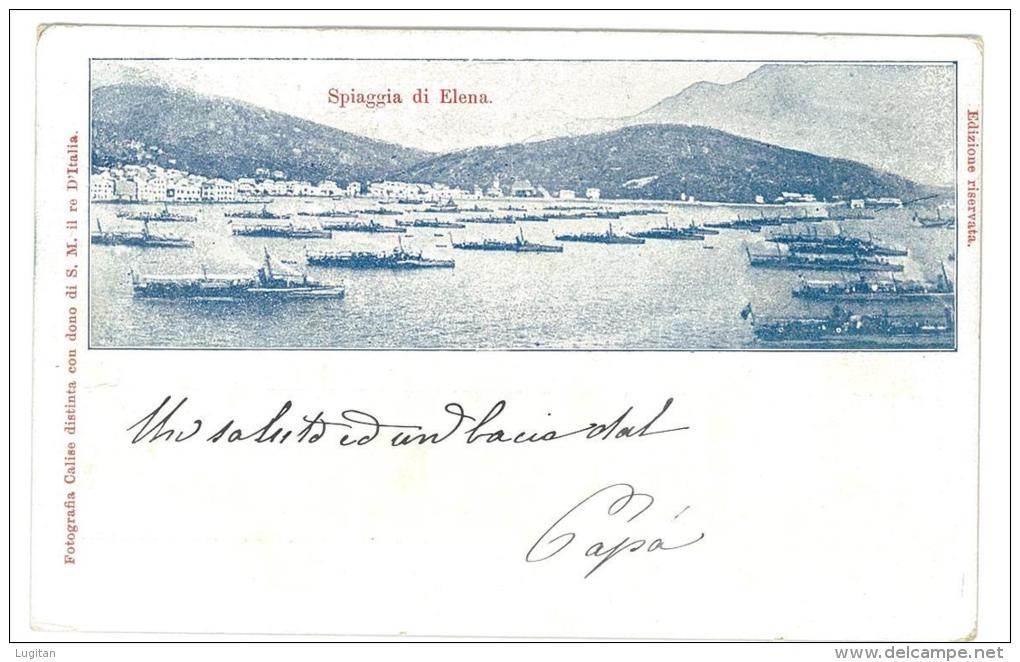 Spiaggia di Elena.
Fotografia Calise distinta con dono di S. M. il re D'Italia.
Edizione riservata.
Un saluto ed un bacio dal
Papá
Lugitan
www.delcampe.net